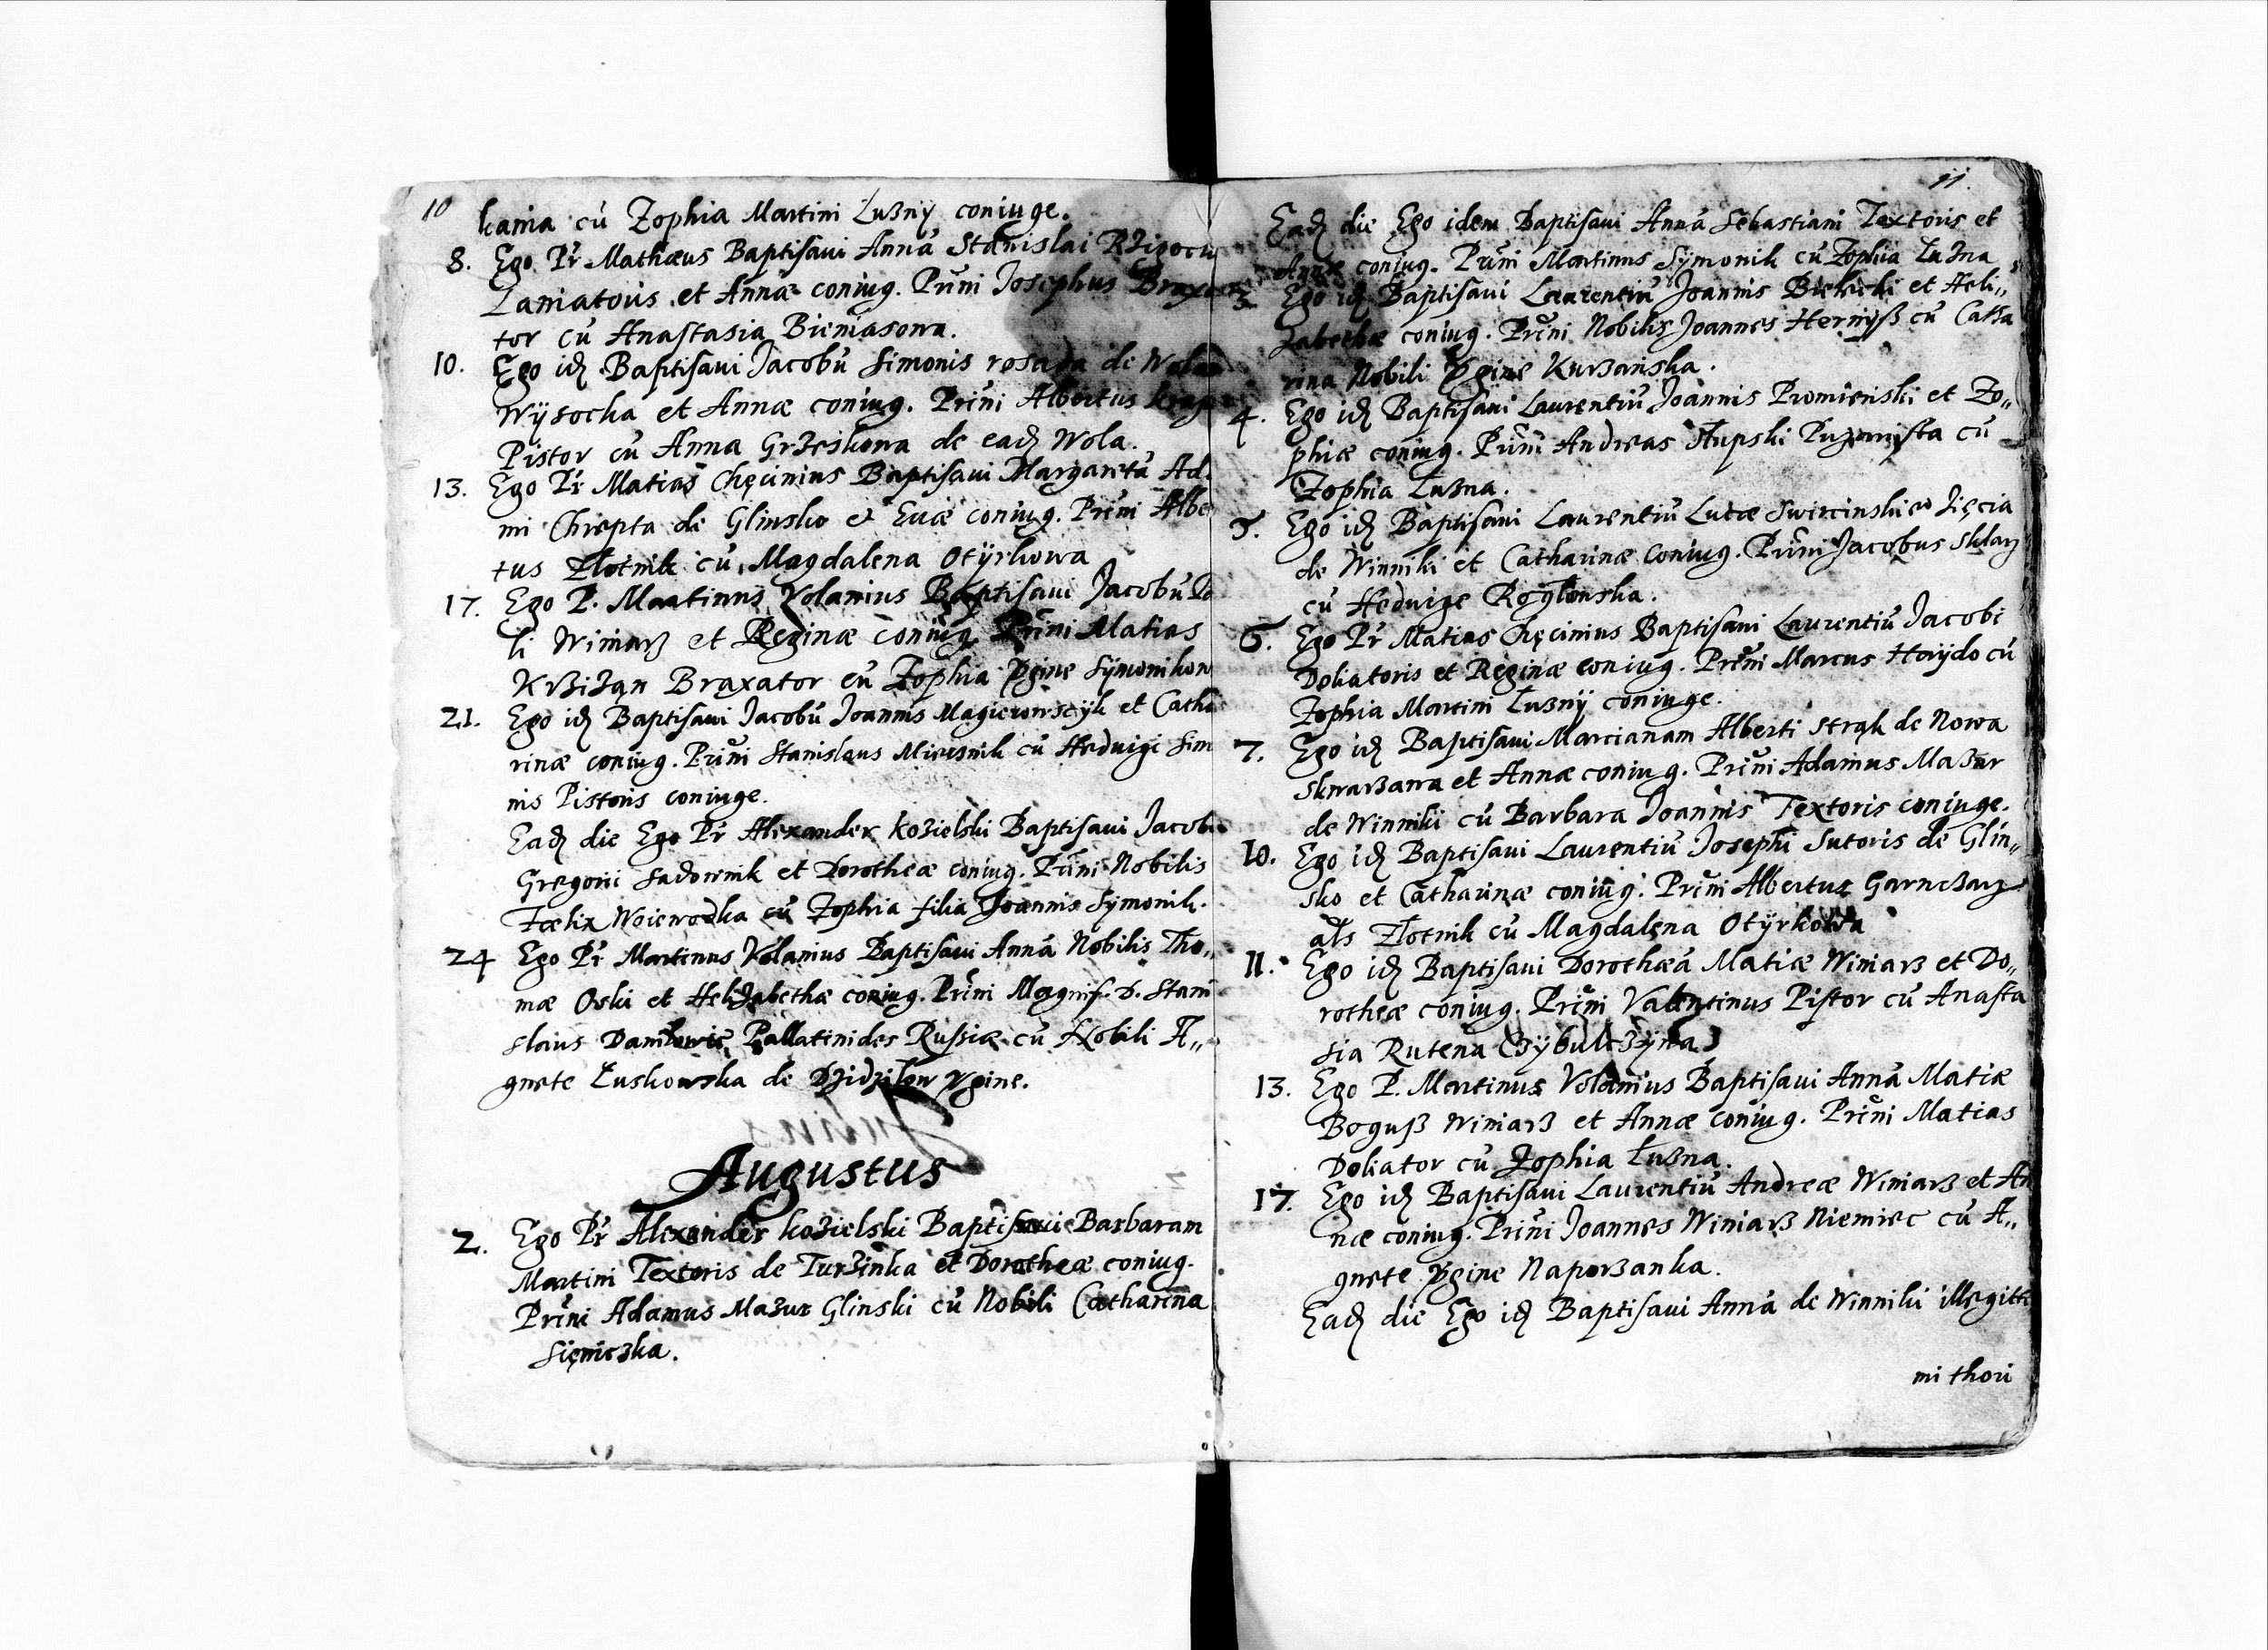 10
kania cū Zophia Martini Luzny coniuge.
8. Ego Pr Mathæus Baptisaui Annā Stanislai
Laniatoris et Annæ coniug. Prīni Josephus
tor cū Anastasia Bieniasowa.
10. Ego id Baptisaui Jacobū Simonis rosada de
Wÿsocka et Annæ coniug. Prīni Albertus
Pistor cū Anna Grzeskowa de ead Wola.
13. Ego Pr Matias Chęcinius Baptisaui Margaretā Ad
mi Chrepta de Glinsko et Euæ coniug. Prīni Albe
tus Złotnik cū Magdalena Otÿrkowa
17. Ego P. Martinus Volanius Baptisaui Jacobū
li Winiarz et Reginæ coniug. Prīni Matias
Krzizan Braxator cū Zophia Vgine Sÿmonikow
21. Ego id Baptisaui Jacobū Joannis Magierowscÿk et Catha
rinæ coniug. Prīni Stanislaus Miecsnik cū Heduige Sim
nis Pistoris coniuge.
Ead die Ego Pr Alexander Kozielski Baptisaui Jacob
Gregorii Sadownik et Dorotheæ coniug. Prīni Nobilis
Fælix Woiewodka cū Zophia filia Joannis Sÿmonik.
24 Ego Pr Martinus Volanius Baptisaui Annā Nobilis Tho„
mæ Oski et Helizabethæ coniug. Prīni Magnif. D. Stani
slaus Daniłowic Pallatinides Russiæ cū Nobili A„
gnete Łuskowska de Dzidziłow Vgine.
Augustus
2. Ego Pr Alexander Kozielski Baptisaui Barbaram
Martini Textoris de Turzinka et Dorotheæ coniug.
Prīni Adamus Mazur Glinski cū Nobili Catharina
Sięniczka.
11.
Ead die Ego idem Baptisaui Annā Sebastiani Textoris et
Annæ coniug. Prīni Martinus Sÿmonik cū Zophia Luzna
3 Ego id Baptisaui Laurentiū Joannis Bielicki et Heli„
zabethæ coniug. Prīni Nobilis Joannes Hernÿß cū Catha
rina Nobili Vgine Kurzanska.
4. Ego id Baptisaui Laurentiū Joannis Promienski et Zo„
phiæ coniug. Prīni Andreas Słupski cū
Zophia Łuzna.
5. Ego id Baptisaui Laurentiū Lucæ Swircinskieo Zięcia
de Winniki et Catharinæ coniug. Prīni Jacobus Sklarz
cū Heduige Rogłonska.
6. Ego Pr Matias Chęcinius Baptisaui Laurentiū Jacobi
Doliatoris et Reginæ coniug. Prīni Marcus Haÿdo cū
Zophia Martini Łuznÿ coniuge.
7. Ego id Baptisaui Marcianam Alberti Strąk de Nowa
Skwarzawa et Annæ coniug. Prīni Adamus Mazur
de Winniki cū Barbara Joannis Textoris coniuge.
10. Ego id Baptisaui Laurentiū Josephi Sutoris de Glin„
sko et Catharinæ coniug. Prīni Albertus Garnczarz
als Złotnik cū Magdalena Otÿrkowa
11. Ego id Baptisaui Dorothæā Matiæ Winiarz et Do„
rotheæ coniug. Prīni Valentinus Pistor cū Anasta
sia Rutena Czÿbulczÿna
13. Ego P. Martinus Volanius Baptisaui Annā Matiæ
Boguß Winiarz et Annæ coniug. Prīni Matias
Doliator cū Zophia Łuzna.
17. Ego id Baptisaui Laurentiū Andreæ Winiarz et An
næ coniug. Prīni Joannes Winiarz Niemiec cū A„
gnete Vgine Naporzanka.
Ead die Ego id Baptisaui Annā de Winniki illegitt
mi thori